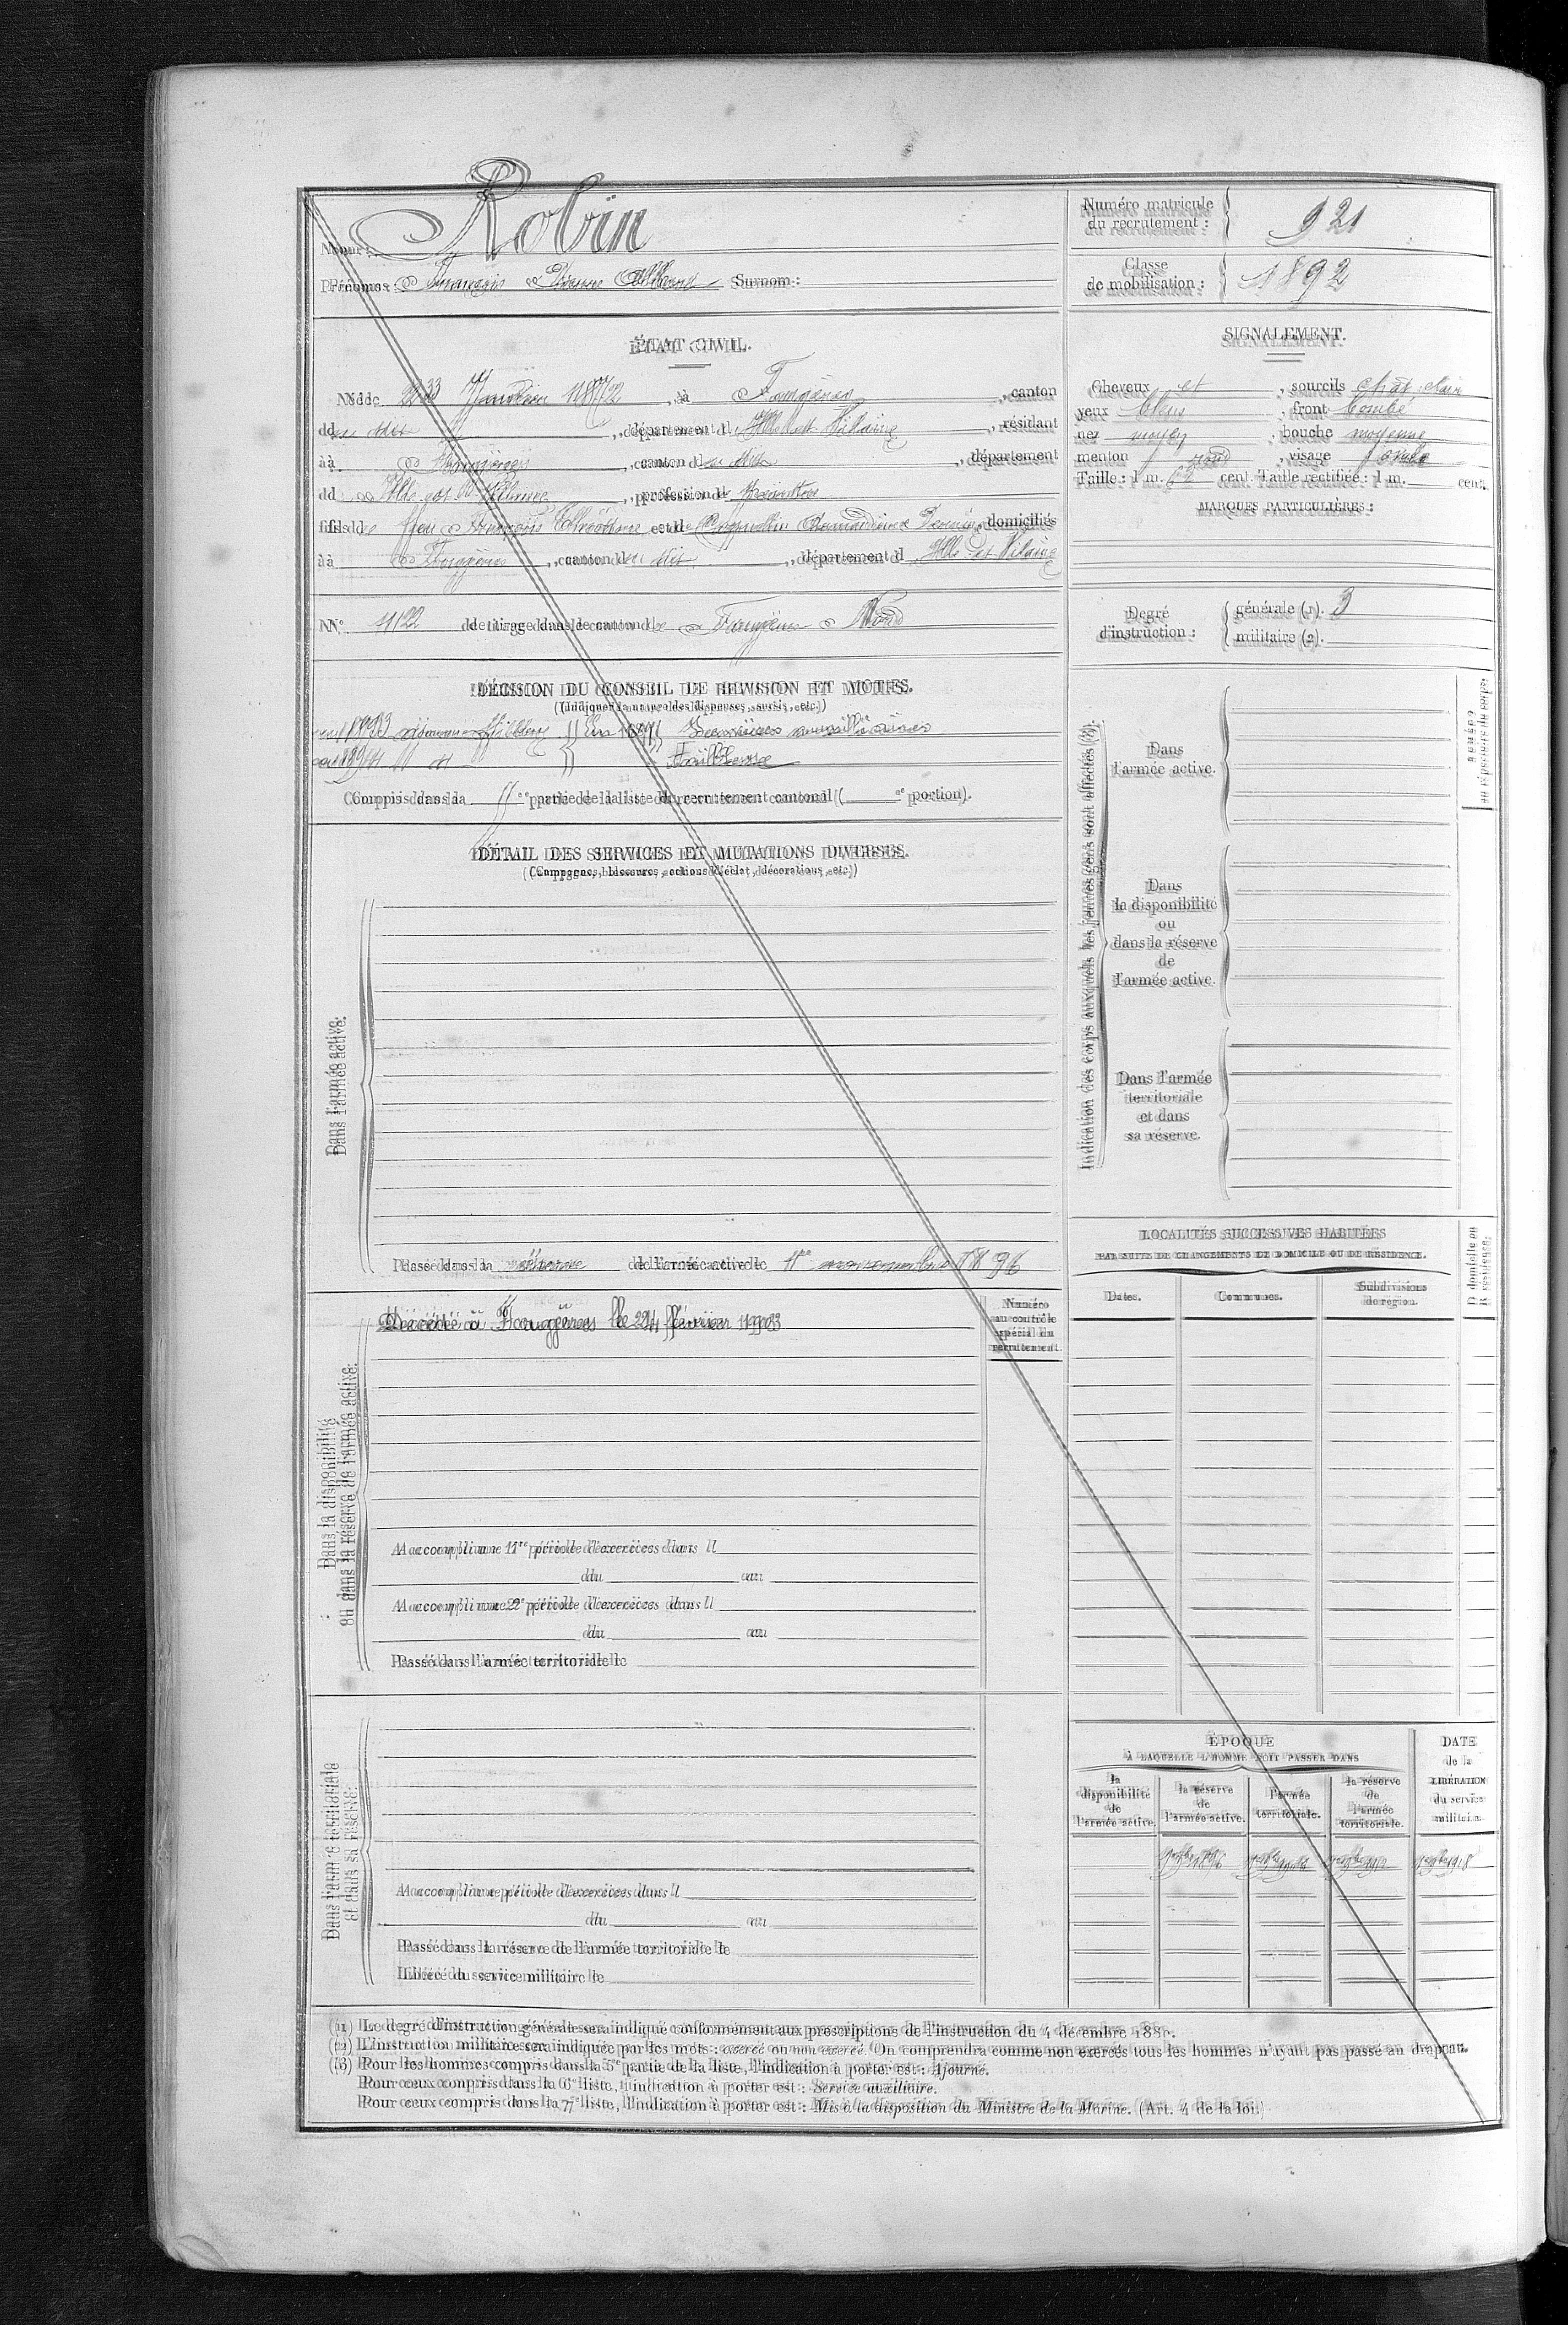 Robin
Nom :
Prénoms : François Albert Surnom :
Numéro matricule du recrutement : 921
Classe de mobilisation : 1892
ÉTAT CIVIL.
Né le 23 Janvier 1872, à Fougères, canton
du dit, département d'Ille et Vilaine, résidant
à Fougères, canton du dit, département
d Ille et Vilaine, profession de peintre
fils de feu François et de, domiciliés
à Fougères, canton du dit, département d Ille et Vilaine
N° 112 de tirage dans le canton de Fougères Nord
SIGNALEMENT.
Cheveux et, sourcils chat. clair
yeux bleus, front bombé
nez moyen, bouche moyenne
menton rond, visage ovale
Taille : 1 m. 62 cent. Taille rectifiée : 1 m. cent.
MARQUES PARTICULIÈRES :
Degré d'instruction :
générale (1). 3
militaire (2).
DÉCISION DU CONSEIL DE REVISION ET MOTIFS.
(Indiquer la nature des dispenses, sursis, etc.)
1893 ajourné faiblesse } En 1895 Services auxiliaires
1894 " } " Faiblesse
Compris dans la e partie de la liste du recrutement cantonal ( e portion).
DÉTAIL DES SERVICES ET MUTATIONS DIVERSES.
(Campagnes, blessures, actions d'éclat, décorations, etc.)
Dans l'armée active.
Passé dans la réserve de l'armée active le 1er novembre 1896
Dans la disponibilité
ou dans la réserve de l'armée active.
Décédé à Fougères le 24 février 1903
Numéro
au contrôle
spécial du
recrutement.
A accompli une 1re période d'exercices dans l
du au
A accompli une 2e période d'exercices dans l
du au
Passé dans l'armée territoriale le
Dans l'armée territoriale
et dans sa réserve.
A accompli une période d'exercices dans l
du au
Passé dans la réserve de l'armée territoriale le
Libéré du service militaire le
Indication des corps auxquels les jeunes gens sont affectés (3).
Dans
l'armée active.
Dans
la disponibilité
ou
dans la réserve
de
l'armée active.
Dans l'armée
territoriale
et dans
sa réserve.
LOCALITÉS SUCCESSIVES HABITÉES
PAR SUITE DE CHANGEMENTS DE DOMICILE OU DE RÉSIDENCE.
Dates. Communes. Subdivisions de région. D domicile ou R résidence.
ÉPOQUE
À LAQUELLE L'HOMME DOIT PASSER DANS
la disponibilité de l'armée active.
la réserve de l'armée active.
l'armée territoriale.
la réserve de l'armée territoriale.
DATE de la LIBÉRATION du service militaire.
(1) Le degré d'instruction générale sera indiqué conformément aux prescriptions de l'instruction du 4 décembre 188 .
(2) L'instruction militaire sera indiquée par les mots : exercé ou non exercé. On comprendra comme non exercés tous les hommes n'ayant pas passé au drapeau.
(3) Pour les hommes compris dans la 5e partie de la liste, l'indication à porter est : Ajourné.
Pour ceux compris dans la 6e liste, l'indication à porter est : Service auxiliaire.
Pour ceux compris dans la 7e liste, l'indication à porter est : Mis à la disposition du Ministre de la Marine. (Art. 4 de la loi.)